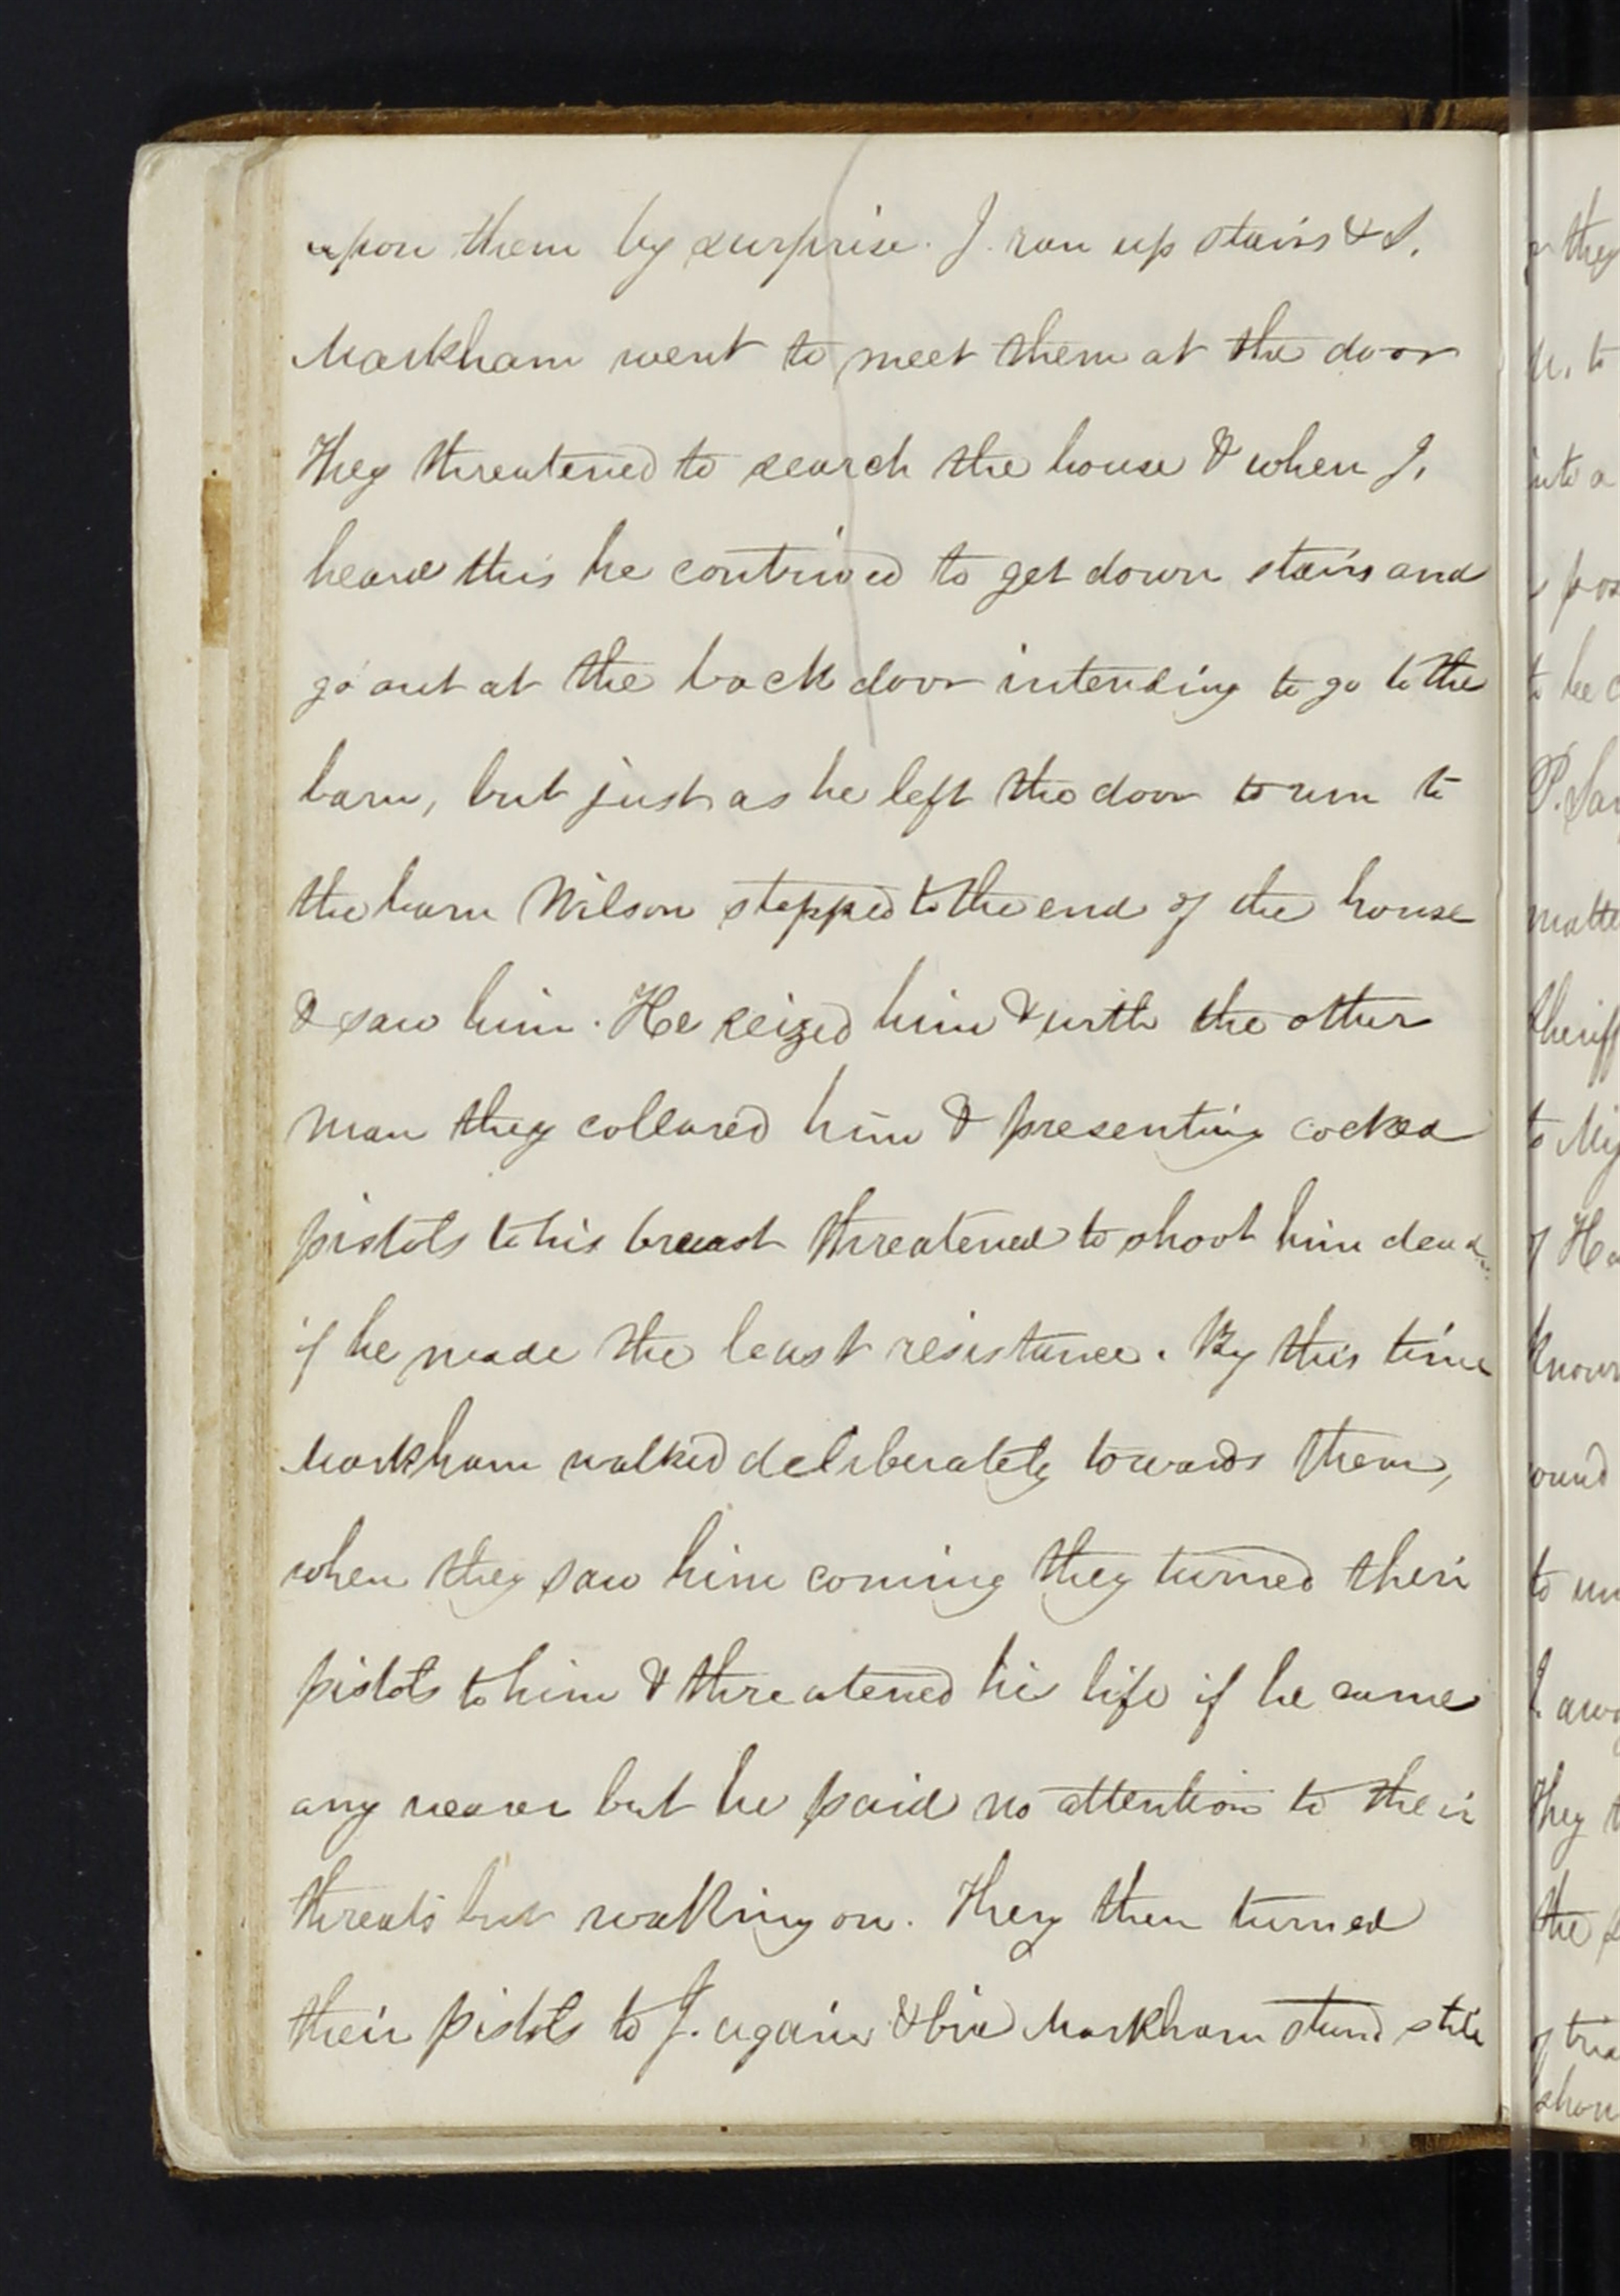 upon them by surprise. J. ran up stairs & S.
Markham went to meet them at the door
They threatened to search the house & when J.
heard this he contrived to get down stairs and
go out at the back door intending to go to the
barn, but just as he left the door to run to
the barn Wilson stepped to the end of the house
& saw him. He seized him & with the other
man they collared him & presenting cocked
pistols to his breast threatened to shoot him dead
if he made the least resistance. By this time
Markham walked deliberately towards them,
when they saw him coming they turned their
pistols to him & threatened his life if he came
any nearer but he paid no attention to their
threats but walking on. They then turned
their pistols to J. again & bid Markham stand still
they
to
into a
to be
P.
to
of
to
they
the